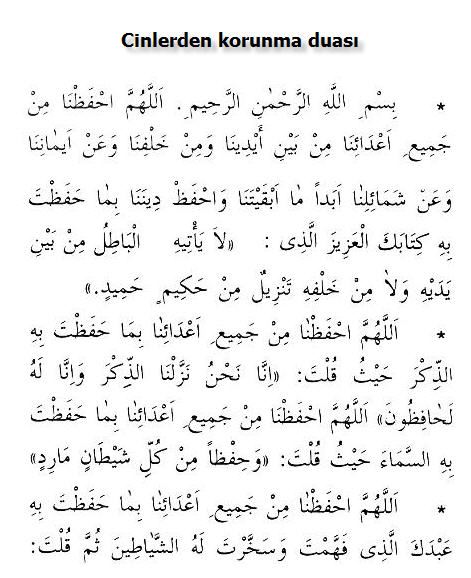 Cinlerden korunma duası
* بِسْمِ اللَّهِ الرَّحْمٰنِ الرَّحِيمِ. اَللَّهُمَّ احْفَظْنَا مِنْ
جَمِيعِ اَعْدَائِنَا مِنْ بَيْنِ أَيْدِينَا وَمِنْ خَلْفِنَا وَعَنْ اَيمَانِنَا
وَعَنْ شَمَائِلِنَا اَبَداً مَا اَبْقَيْتَنَا وَاحْفَظْ دِينَنَا بِمَا حَفَظْتَ
بِهِ كِتَابَكَ الْعَزِيزَ الَّذِى : «لاَ يَأْتِيهِ الْبَاطِلُ مِنْ بَيْنِ
يَدَيْهِ وَلاَ مِنْ خَلْفِهِ تَنْزِيلٌ مِنْ حَكِيمٍ حَمِيدٍ.»
* اَللَّهُمَّ احْفَظْنَا مِنْ جَمِيعِ اَعْدَائِنَا بِمَا حَفَظْتَ بِهِ
الذِّكْرَ حَيْثُ قُلْتَ: «اِنَّا نَحْنُ نَزَّلْنَا الذِّكْرَ وَاِنَّا لَهُ
لَحَافِظُونَ» اَللَّهُمَّ احْفَظْنَا مِنْ جَمِيعِ اَعْدَائِنَا بِمَا حَفَظْتَ
بِهِ السَّمَاءَ حَيْثُ قُلْتَ: «وَحِفْظاً مِنْ كُلِّ شَيْطَانٍ مَارِدٍ»
* اَللَّهُمَّ احْفَظْنَا مِنْ جَمِيعِ اَعْدَائِنَا بِمَا حَفَظْتَ بِهِ
عَبْدَكَ الَّذِى فَهَّمْتَ وَسَخَّرْتَ لَهُ الشَّيَاطِينَ ثُمَّ قُلْتَ: